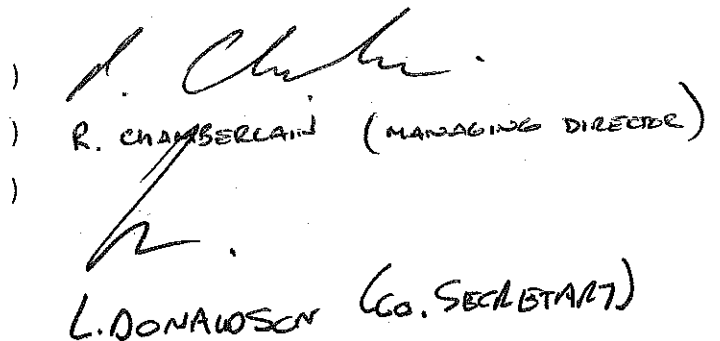 )
) R. CHAMBERLAIN (MANAGING DIRECTOR)
)
L. DONALDSON (CO. SECRETARY)